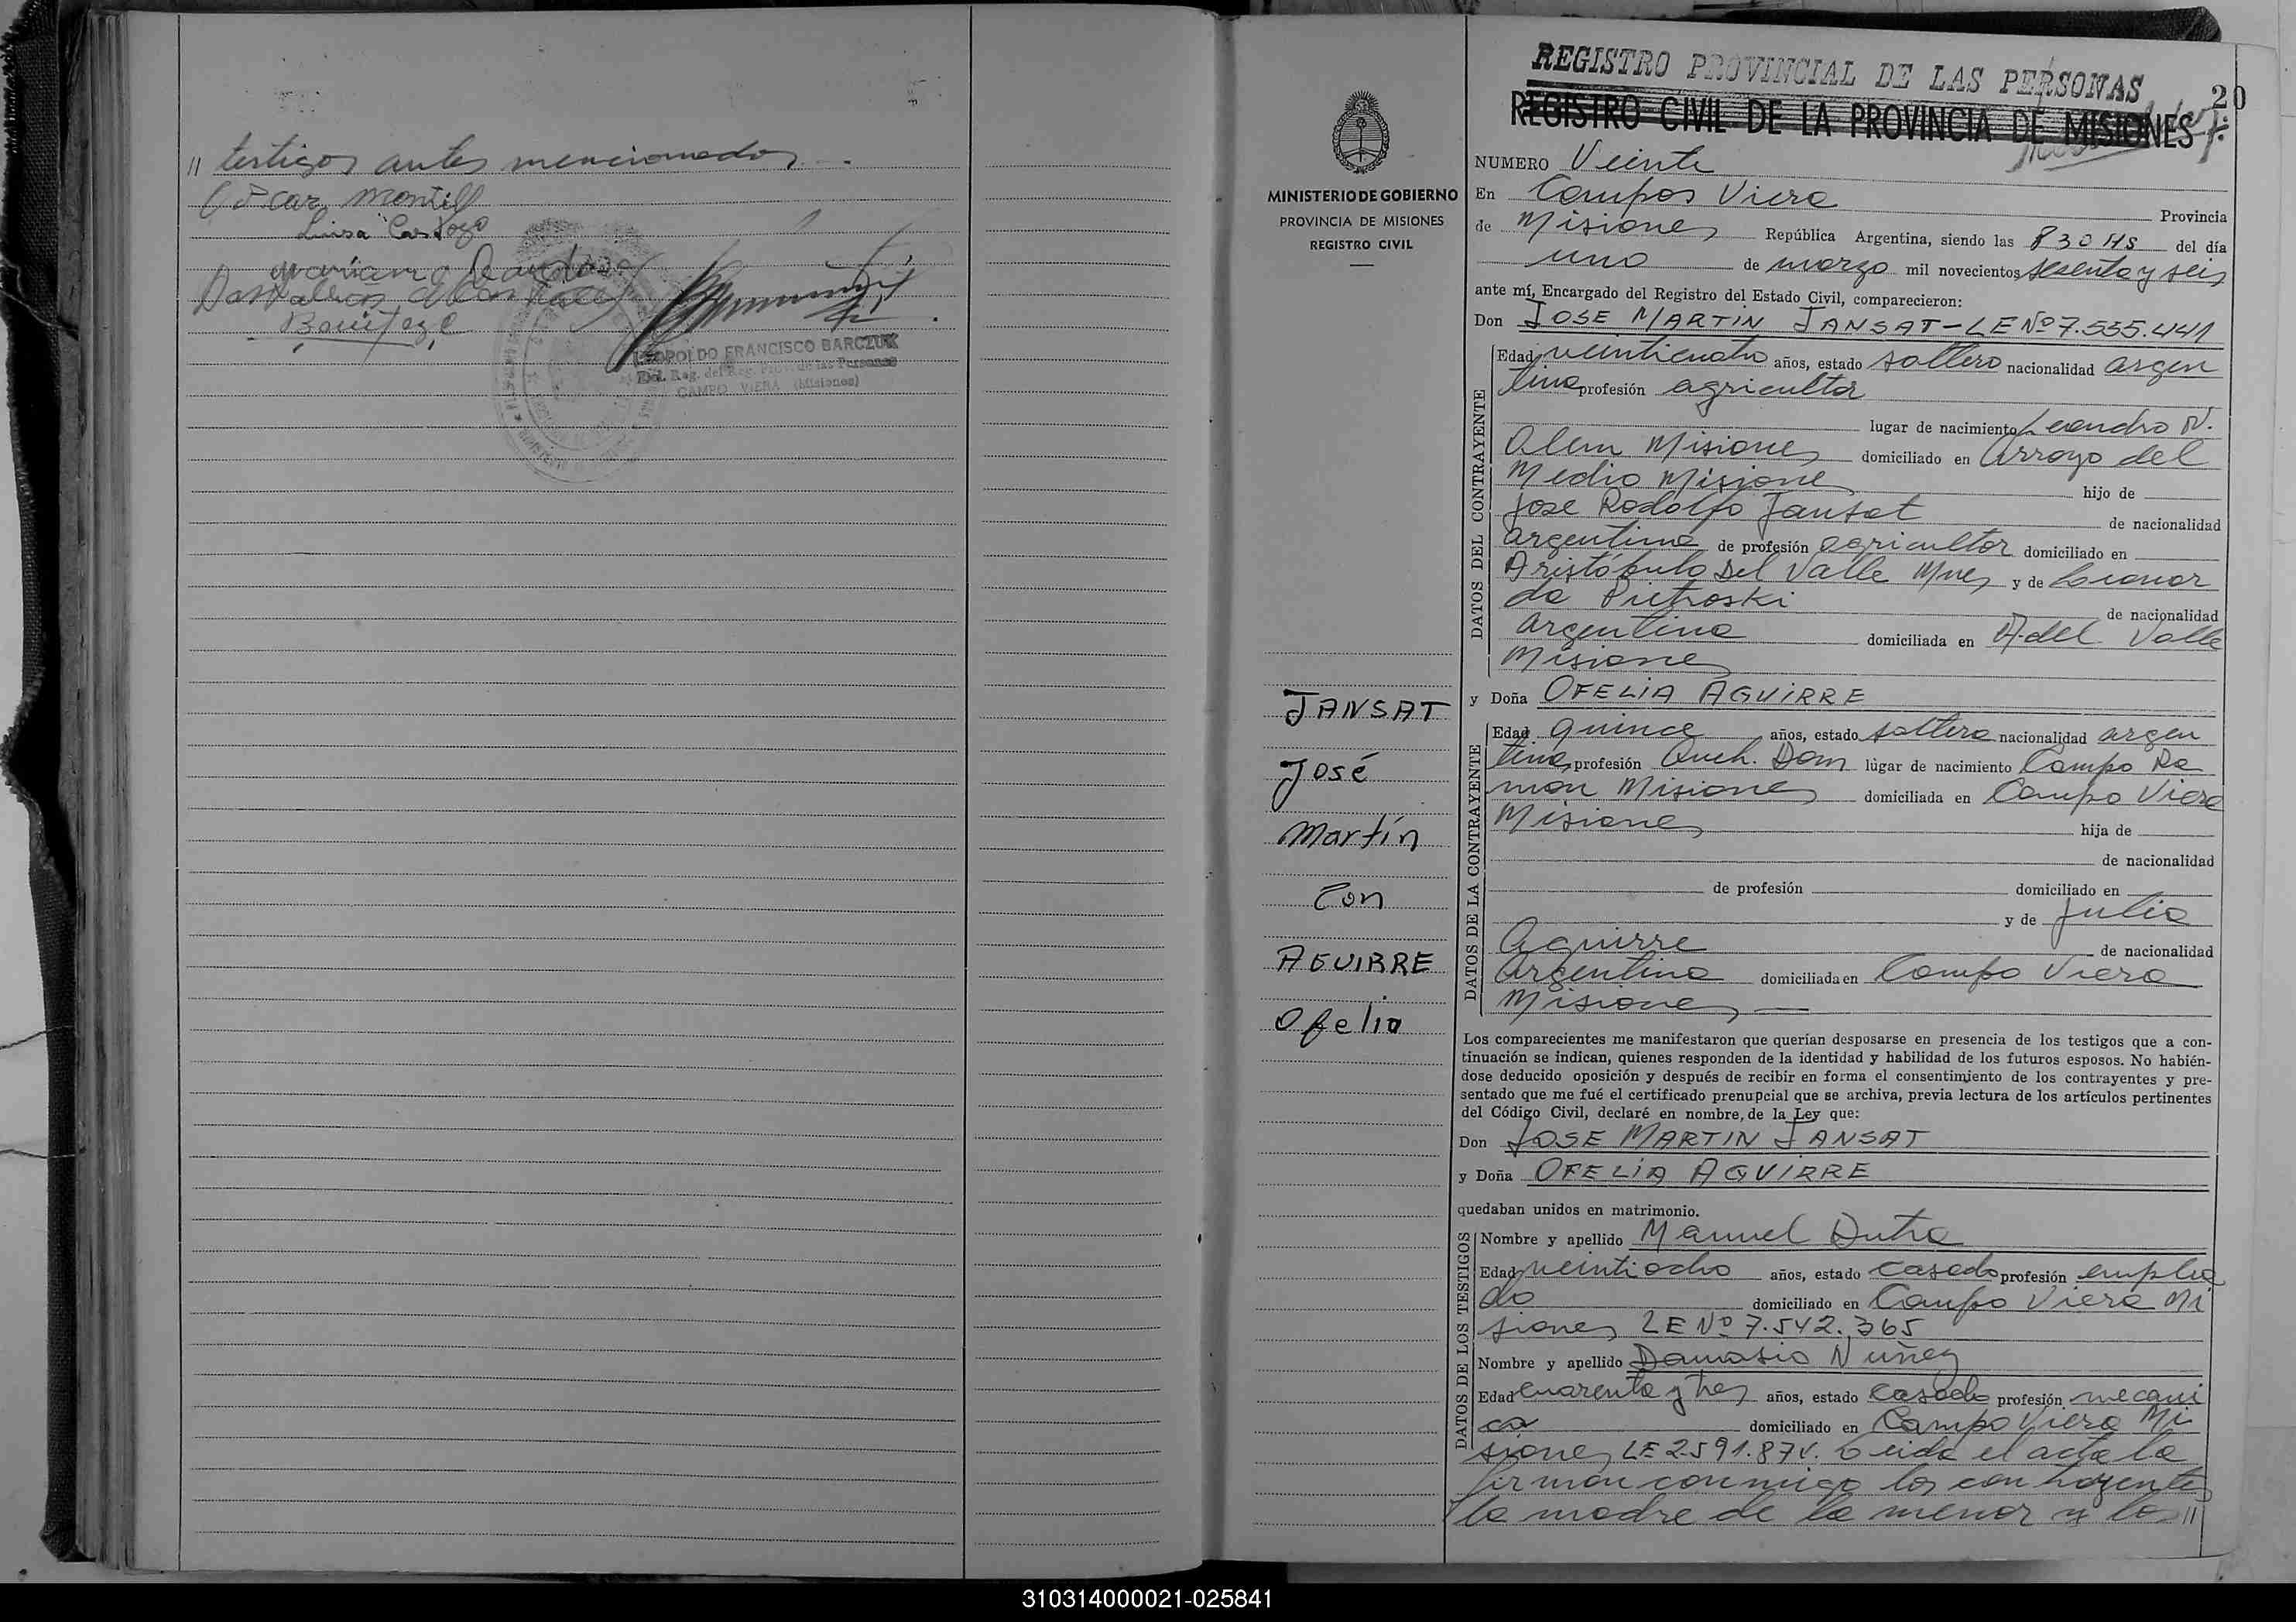 // testigos antes mencionados.-
Oscar Montiel
Luisa Cardozo
Mariano Cardozo
Benitez
LEOPOLDO FRANCISCO BARCZUK
Del. Reg. del Reg. Prov. de las Personas
CAMPO VIERA (Misiones)
REGISTRO PROVINCIAL DE LAS PERSONAS
20
REGISTRO CIVIL DE LA PROVINCIA DE MISIONES
MINISTERIO DE GOBIERNO
PROVINCIA DE MISIONES
REGISTRO CIVIL
JANSAT
José
Martín
Con
AGUIRRE
Ofelia
NUMERO Veinte
En Campos Viera Provincia
de Misiones República Argentina, siendo las 8 30 HS del día
uno de marzo mil novecientos sesenta y seis
ante mí, Encargado del Registro del Estado Civil, comparecieron:
Don JOSE MARTIN JANSAT - LE Nº 7.555.441
DATOS DEL CONTRAYENTE
Edad veinticuatro años, estado soltero nacionalidad argen
tina profesión agricultor
lugar de nacimiento Leandro N.
Alem Misiones domiciliado en Arroyo del
Medio Misiones hijo de
Jose Rodolfo Jansat de nacionalidad
argentina de profesión agricultor domiciliado en
Aristóbulo Del Valle Mnes y de Leonor
da Pietroski de nacionalidad
argentina domiciliada en A. del Valle
Misiones
y Doña OFELIA AGUIRRE
DATOS DE LA CONTRAYENTE
Edad quince años, estado soltera nacionalidad argen
tina profesión Queh. Dom lugar de nacimiento Campo Ra
mon Misiones domiciliada en Campo Viera
Misiones hija de
de nacionalidad
de profesión domiciliado en
y de Julia
Aguirre de nacionalidad
Argentina domiciliada en Campo Viera
Misiones —
Los comparecientes me manifestaron que querían desposarse en presencia de los testigos que a con-
tinuación se indican, quienes responden de la identidad y habilidad de los futuros esposos. No habién-
dose deducido oposición y después de recibir en forma el consentimiento de los contrayentes y pre-
sentado que me fué el certificado prenupcial que se archiva, previa lectura de los artículos pertinentes
del Código Civil, declaré en nombre de la Ley que:
Don JOSE MARTIN JANSAT
y Doña OFELIA AGUIRRE
quedaban unidos en matrimonio.
DATOS DE LOS TESTIGOS
Nombre y apellido Manuel Dutra
Edad veintiocho años, estado casado profesión emplea
do domiciliado en Campo Viera Mi
siones LE Nº 7.542.365
Nombre y apellido Damasio Nuñez
Edad cuarenta y tres años, estado casado profesión mecani
co domiciliado en Campo Viera Mi
siones LE 2.591.874. Leida el acta la
firman conmigo los contrayentes
la madre de la menor y los //
310314000021-025841